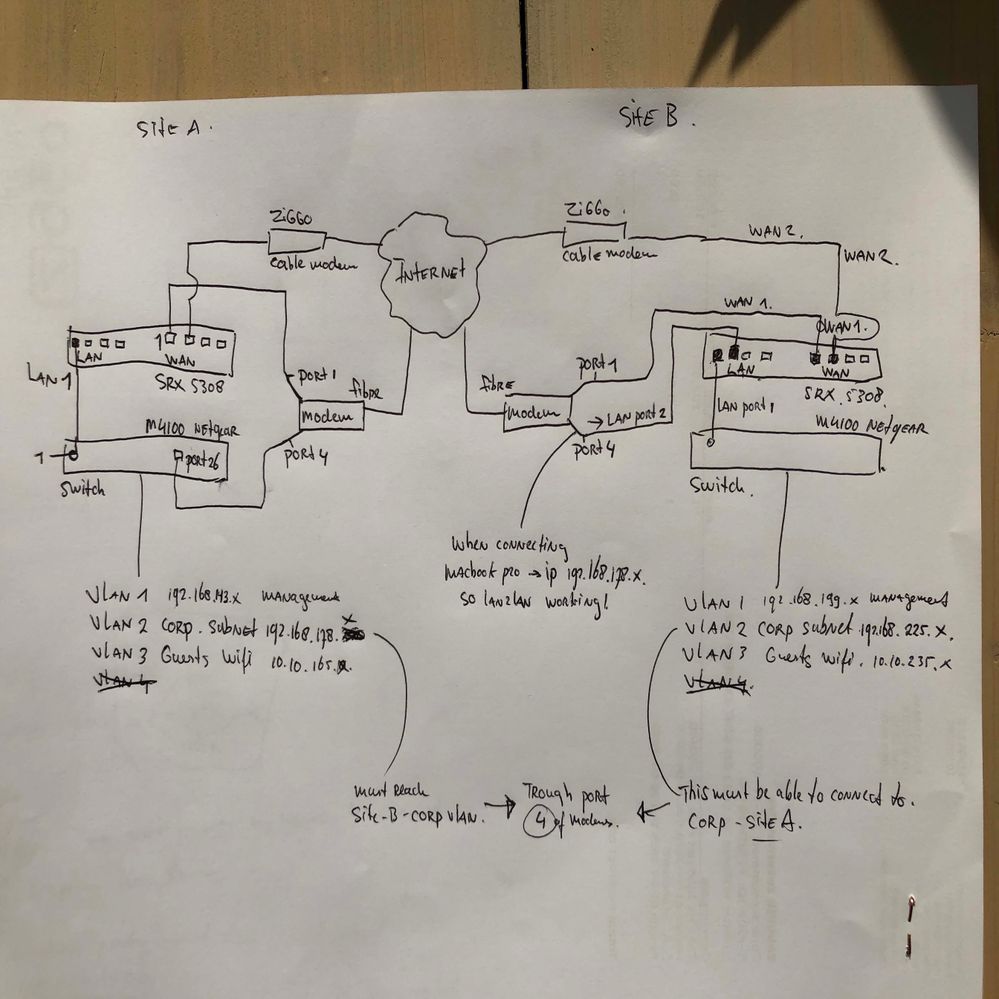 SITE A.
SITE B.
ZIGGO
cable modem
INTERNET
ZIGGO.
cable modem
WAN 2.
WAN 2.
WAN 1.
WAN 1.
LAN
1
WAN
LAN 1
SRX 5308
PORT 1
fibRE
modem
PORT 4
M4100 NETGEAR
1
PORT 26
Switch
fibRE
PORT 1
modem
→ LAN PORT 2
PORT 4
LAN
WAN
SRX 5308.
LAN PORT 1
M4100 NETGEAR
Switch.
When connecting
MACbook pro → ip 192.168.178.x.
SO LAN2LAN WORKING!
VLAN 1 192.168.143.x MANAGEMENT
VLAN 2 CORP. SUBNET 192.168.178.x
VLAN 3 Guests Wifi 10.10.165.x.
VLAN 4
VLAN 1 192.168.199.x MANAGEMENT
VLAN 2 CORP SUBNET 192.168.225.x.
VLAN 3 Guests Wifi. 10.10.235.x
VLAN 4.
must Reach
Site-B-CORP VLAN.
TROUGH PORT
4 of modems.
This must be able to connect to.
CORP - SITE A.